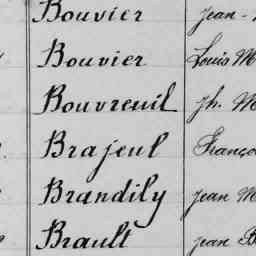 Bouvier Jean-
Bouvier Louis M
Bouvreuil Jh. M
Brajeul Franço
Brandily Jean M
Brault Jean B